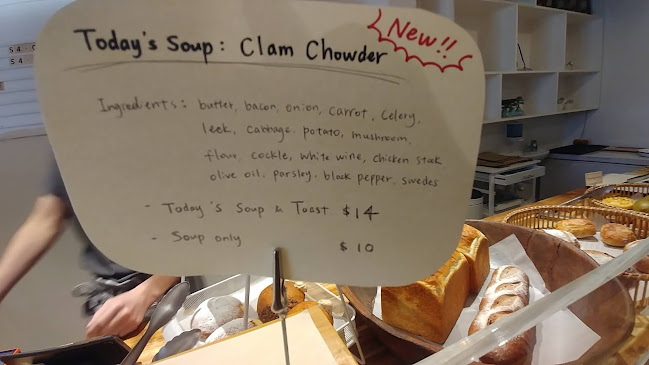 Today's Soup: Clam Chowder
New!!
Ingredients: butter, bacon, onion, carrot, celery,
leek, cabbage, potato, mushroom,
flour, cockle, white wine, chicken stock
olive oil, parsley, black pepper, swedes
- Today's Soup & Toast $14
- Soup only $10